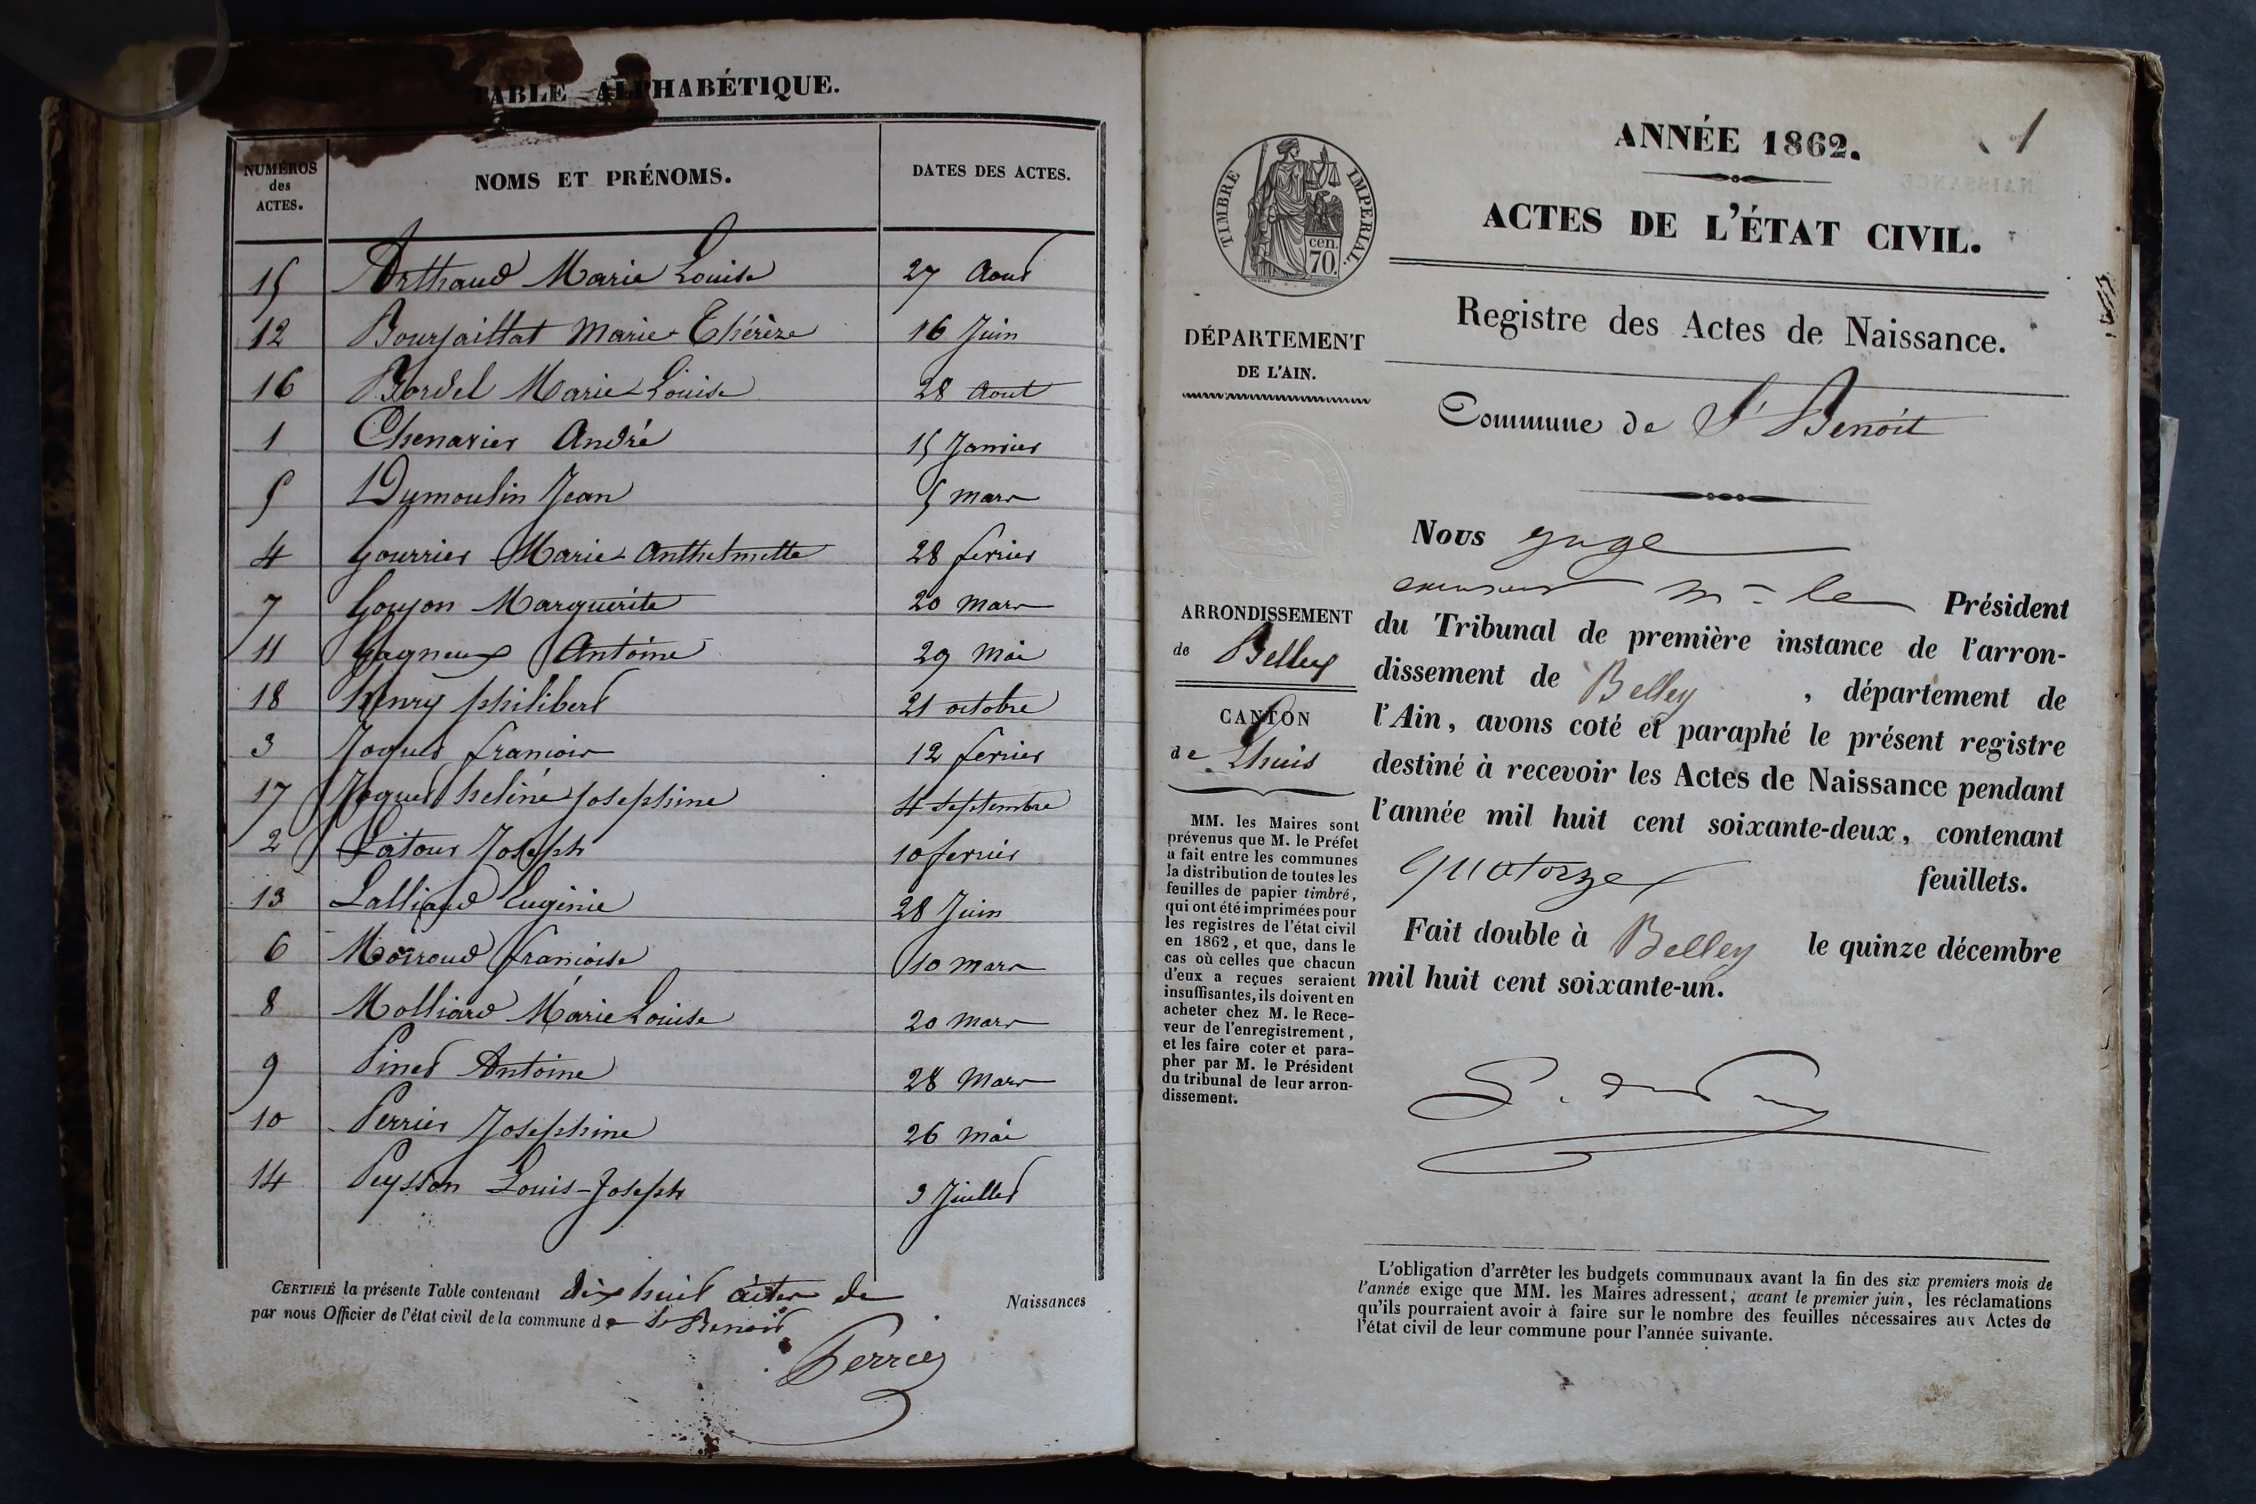 TABLE ALPHABÉTIQUE.
NUMÉROS des ACTES. NOMS ET PRÉNOMS. DATES DES ACTES.
15 Arthaud Marie Louise 27 Aout
12 Bourjaillat Marie Thérèze 16 Juin
16 Bordel Marie Louise 28 Aout
1 Chenavier André 15 Janvier
5 Dumoulin Jean 5 mars
4 Gourrier Marie Anthelmette 28 fevrier
7 Goujon Marguerite 20 mars
11 Gagneux Antoine 29 Mai
18 henry philibert 21 octobre
3 Joguet francois 12 fevrier
17 Joguet heléne Josephine 4 septembre
2 Latour Joseph 10 fevrier
13 Lalliard Eugénie 28 Juin
6 Moiroud francoise 10 mars
8 Molliard Marie Louise 20 mars
9 Pinet Antoine 28 Mars
10 Perrier Josephine 26 mai
14 Peysson Louis-Joseph 3 Juillet
CERTIFIÉ la présente Table contenant dix huit actes de Naissances
par nous Officier de l'état civil de la commune de St Benoit
Perrier
1
ANNÉE 1862.
ACTES DE L'ÉTAT CIVIL.
TIMBRE IMPERIAL.
cen.
70.
Registre des Actes de Naissance.
DÉPARTEMENT
DE L'AIN.
Commune de St Benoit
ARRONDISSEMENT
de Belley
CANTON
de Lhuis
MM. les Maires sont
prévenus que M. le Préfet
a fait entre les communes
la distribution de toutes les
feuilles de papier timbré,
qui ont été imprimées pour
les registres de l'état civil
en 1862, et que, dans le
cas où celles que chacun
d'eux a reçues seraient
insuffisantes, ils doivent en
acheter chez M. le Rece-
veur de l'enregistrement,
et les faire coter et para-
pher par M. le Président
du tribunal de leur arron-
dissement.
Nous juge
m le Président
du Tribunal de première instance de l'arron-
dissement de Belley, département de
l'Ain, avons coté et paraphé le présent registre
destiné à recevoir les Actes de Naissance pendant
l'année mil huit cent soixante-deux, contenant
quatorze feuillets.
Fait double à Belley le quinze décembre
mil huit cent soixante-un.
L'obligation d'arrêter les budgets communaux avant la fin des six premiers mois de
l'année exige que MM. les Maires adressent, avant le premier juin, les réclamations
qu'ils pourraient avoir à faire sur le nombre des feuilles nécessaires aux Actes de
l'état civil de leur commune pour l'année suivante.